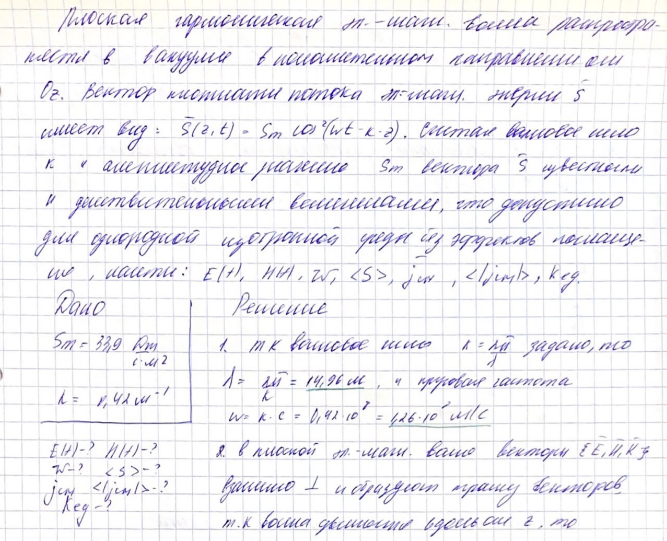 Плоская гармоническая эл.-маг. волна распростра-
няется в вакууме в положительном направлении оси
Oz. Вектор плотности потока эл-маг. энергии S̄
имеет вид: S̄(z,t) = Sm cos²(wt-к·z). Считая волновое число
к и амплитудное значение Sm вектора S̄ известными
и действительными величинами, что допустимо
для однородной изотропной среды без эффектов поглоще-
ния, найти: E(t), H(t), w, <S>, jсм, <|jсм|>, Kед.
Дано Решение
Sm = 33,9 Дж/с·м² 1. т.к волновое число k = 2π/λ задано, то
k = 0,42 м⁻¹ λ = 2π/k = 14,96 м, и круговая частота
w = k·c = 0,42·10⁸ = 1,26·10⁸ м/с
E(t)-? H(t)-? 2. в плоской эл.-маг. волне векторы {Ē, H̄, K̄}
w-? <S>-? взаимно ⊥ и образуют тройку векторов,
jсм <|jсм|>-?
Kед-? т.к волна движется вдоль оси z, то